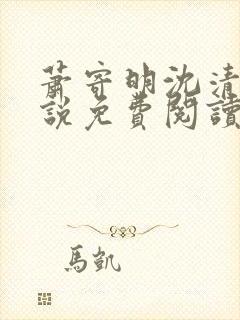 蕭寄明沈清
說免費閱讀
馬凱